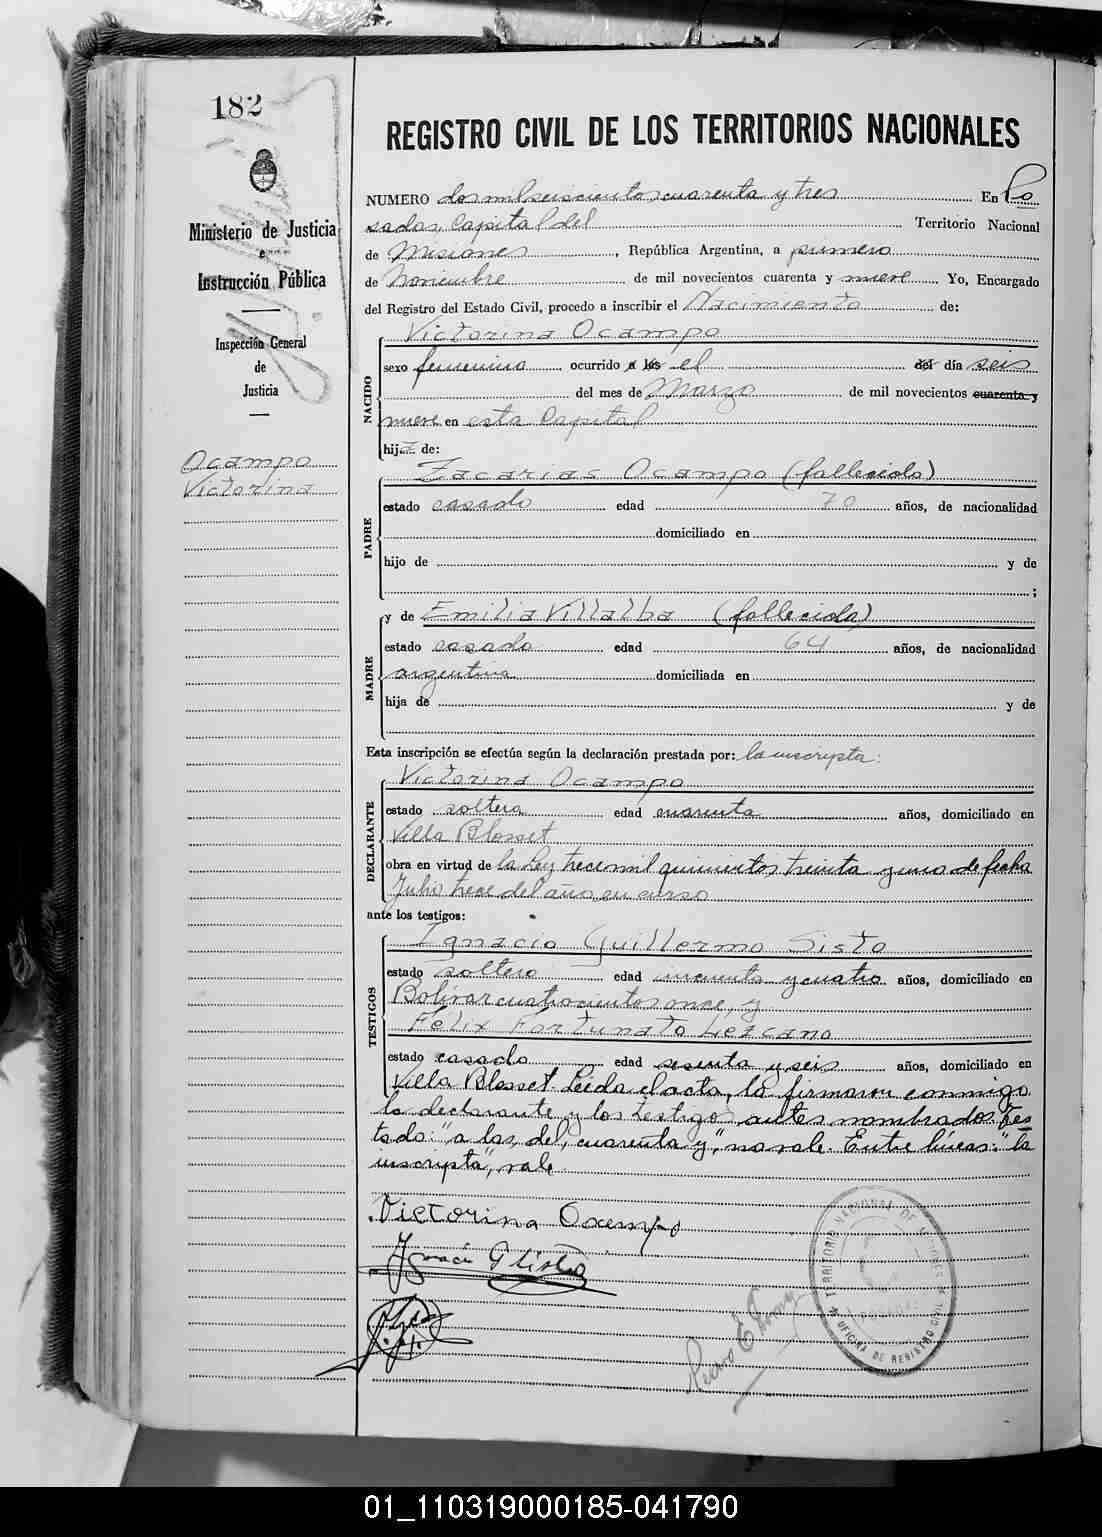 182
Ministerio de Justicia
e
Instrucción Pública
Inspección General
de
Justicia
Ocampo
Victorina
REGISTRO CIVIL DE LOS TERRITORIOS NACIONALES
NUMERO dos mil seiscientos cuarenta y tres En Po
sadas, Capital del Territorio Nacional
de Misiones, República Argentina, a primero
de Noviembre de mil novecientos cuarenta y nueve Yo, Encargado
del Registro del Estado Civil, procedo a inscribir el Nacimiento de:
NACIDO
Victorina Ocampo
sexo femenino ocurrido a las el del día seis
del mes de Marzo de mil novecientos cuarenta y
nueve en esta Capital
hija de:
PADRE
Zacarias Ocampo (fallecido)
estado casado edad 70 años, de nacionalidad
domiciliado en
hijo de y de
;
MADRE
y de Emilia Villalba (fallecida)
estado casada edad 64 años, de nacionalidad
argentina domiciliada en
hija de y de
Esta inscripción se efectúa según la declaración prestada por: la inscripta:
DECLARANTE
Victorina Ocampo
estado soltera edad cuarenta años, domiciliado en
Villa Blosset
obra en virtud de la Ley trece mil quinientos treinta y uno de fecha
Julio trece del año en curso
ante los testigos:
TESTIGOS
Ignacio Guillermo Sisto
estado soltero edad cincuenta y cuatro años, domiciliado en
Bolívar cuatrocientos once, y
Félix Fortunato Lezcano
estado casado edad sesenta y seis años, domiciliado en
Villa Blosset. Leida el acta, la firmaron conmigo
la declarante y los testigos antes nombrados. Tes
tado: "a las, del, cuarenta y", no vale. Entre líneas: "la
inscripta", vale.
Victorina Ocampo
Ignacio G Sisto
TERRITORIO NACIONAL DE MISIONES
POSADAS
OFICINA DE REGISTRO CIVIL
01_110319000185-041790